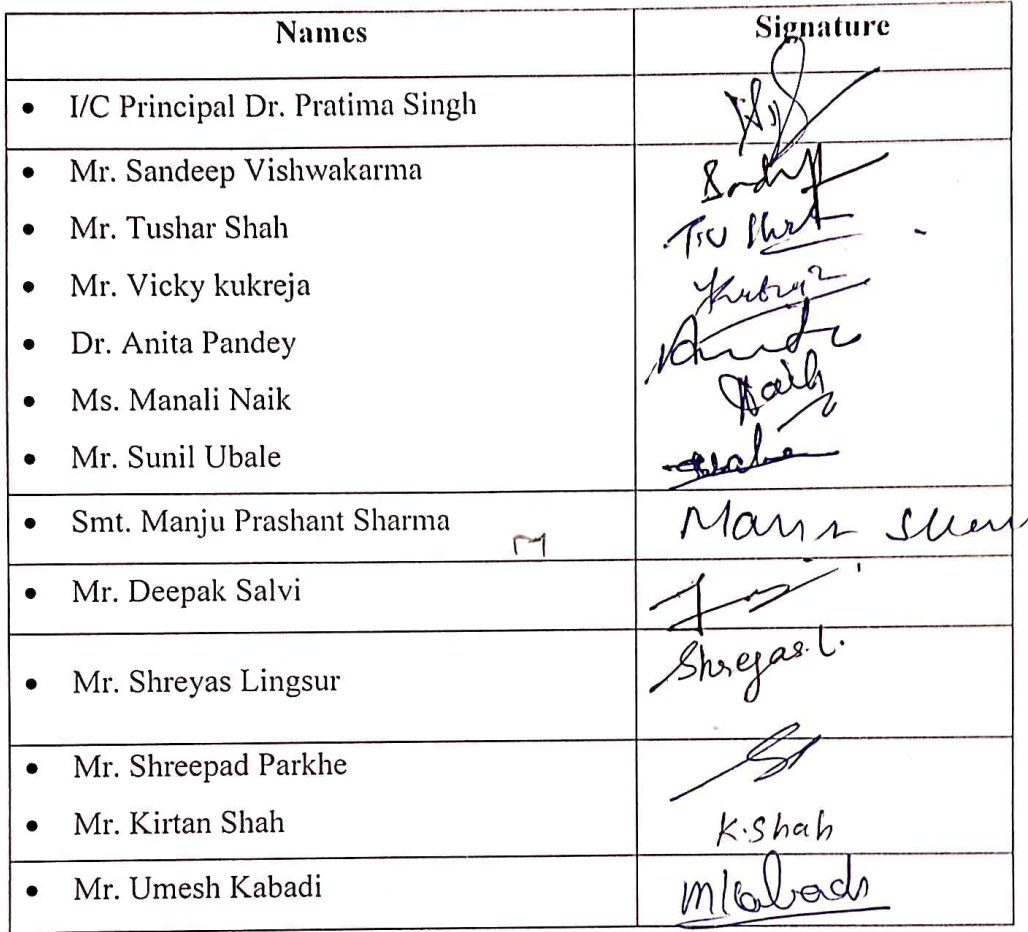 Names Signature
• I/C Principal Dr. Pratima Singh
• Mr. Sandeep Vishwakarma
• Mr. Tushar Shah
• Mr. Vicky kukreja
• Dr. Anita Pandey
• Ms. Manali Naik Naik
• Mr. Sunil Ubale
• Smt. Manju Prashant Sharma
• Mr. Deepak Salvi
• Mr. Shreyas Lingsur Shreyas.L.
• Mr. Shreepad Parkhe
• Mr. Kirtan Shah K.Shah
• Mr. Umesh Kabadi